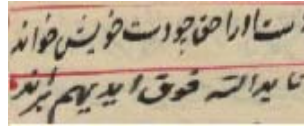 دست او را حق چو دست خویش خواند
تا یدالله فوق ایدیهم براند